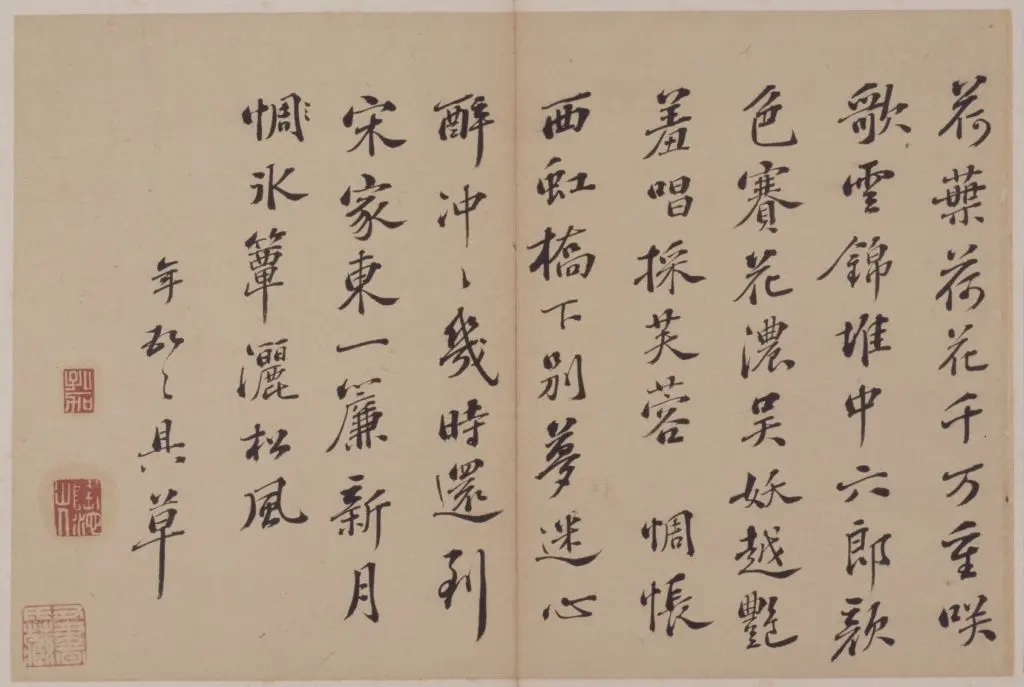 荷葉荷花千万重咲
歌雲錦堆中六郎顏
色賽花濃吴妖越艷
羞唱採芙蓉 惆悵
西虹橋下別夢迷心
醉冲〻幾時還到
宋家東一簾新月
惆冰簟灑松風
年 具草